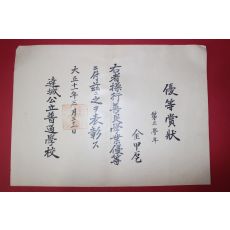 優等賞狀
第五學年
金甲
右者操行善良學業優等
ニ付茲ニ之ヲ表彰ス
大正十一年三月
達城公立普通學校